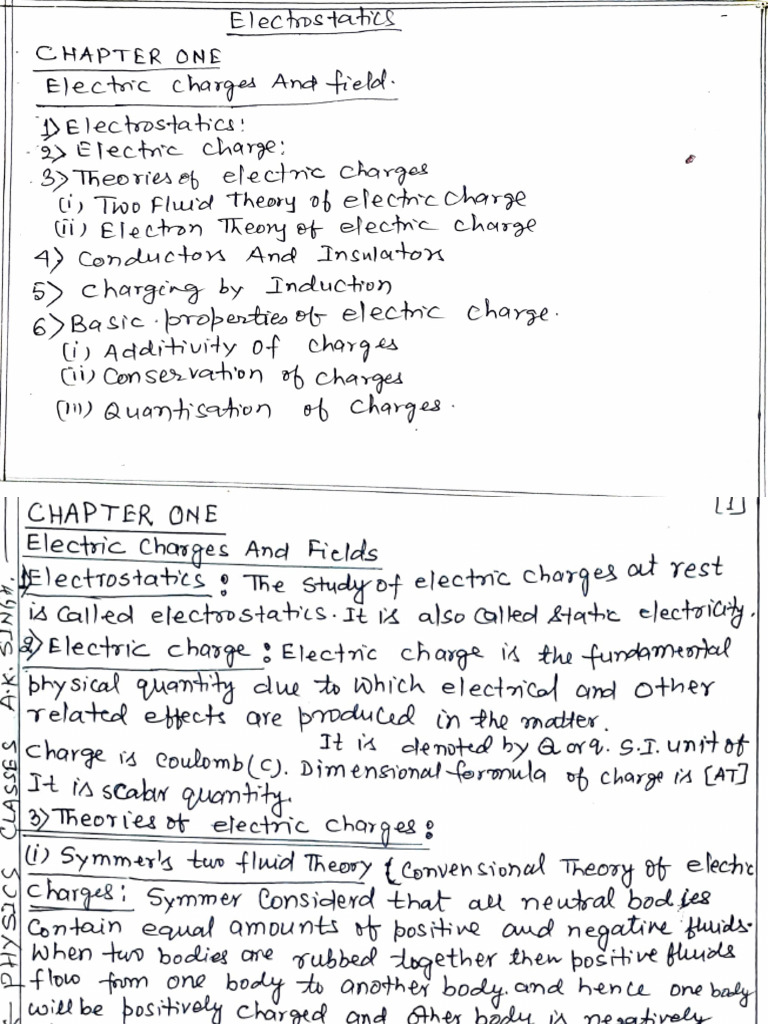 Electrostatics
CHAPTER ONE
Electric charges And field.
1) Electrostatics:
2) Electric charge:
3) Theories of electric charges
(i) Two Fluid Theory of electric charge
(ii) Electron Theory of electric charge
4) Conductors And Insulators
5) Charging by Induction
6) Basic properties of electric charge.
(i) Additivity of charges
(ii) Conservation of charges
(iii) Quantisation of charges.
[1]
CHAPTER ONE
Electric Charges And Fields
1) Electrostatics: The study of electric charges at rest
is called electrostatics. It is also called static electricity.
2) Electric charge: Electric charge is the fundamental
physical quantity due to which electrical and other
related effects are produced in the matter.
It is denoted by Q or q. S.I. unit of
charge is coulomb(C). Dimensional formula of charge is [AT]
It is scalar quantity.
3) Theories of electric charges:
(i) Symmer's two fluid Theory (Convensional Theory of electric
charges: Symmer Considerd that all neutral bodies
contain equal amounts of positive and negative fluids.
When two bodies are rubbed together then positive fluids
flow from one body to another body. and hence one body
will be positively charged and other body is negatively
PHYSICS CLASSES A.K. SINGH.